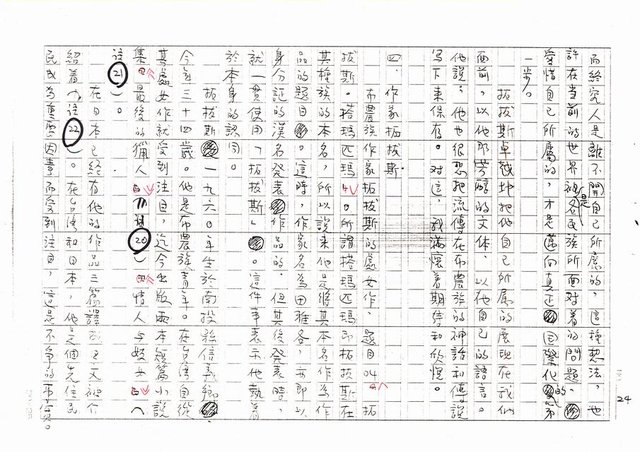 而終究人是離不開自己所屬的，這種想法，也
許在當前的世界是各民族所面對着的問題，
愛惜自己所屬的，才是邁向真正國際化的第
一步。
拔拔斯卓越地把他自己所屬的展現在我們
面前，以他那芳醇的文体，以他自己的語言。
他說，他也很想把流傳在布農族的神話和傳說
寫下來保存。對這，我滿懷着期待和欣慌。
四、作家拔拔斯
布農族作家拔拔斯的處女作，題目叫拓
拔斯・搭瑪匹瑪。所謂搭瑪匹瑪即拓拔斯在
其種族的本名，所以說來他是從其本名作為作
品的題目。這時，作家名為田雅各，亦即以
身分証的漢名發表作品的。但其後發表時，
就一貫使用「拓拔斯」。這件事表示他執着
於本身的認同。
拔拔斯一九六○年生於南投縣信義鄉，
今年三十四歲。他是布農族青年。在台灣自從
其處女作就受到注目，迄今出版兩本短篇小說
集《最後的獵人》（註20）《情人與妓女》（
註21）。
在日本已經有他的作品三篇譯成日文被介
紹着（註22）。在台灣和日本，他是個先住民
民或為重要因素而受到注目，這是不爭的事實。
24